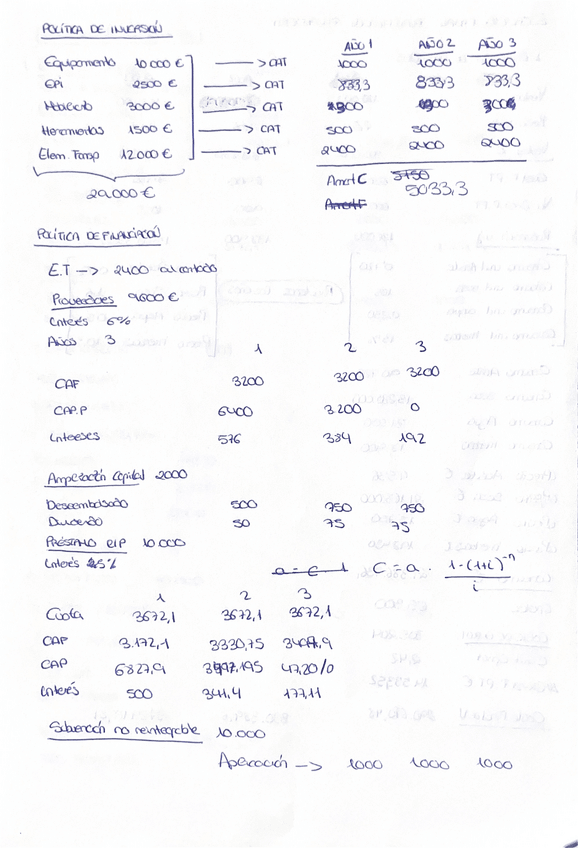 POLÍTICA DE INVERSIÓN
AÑO 1 AÑO 2 AÑO 3
Equipamiento 10 000 € → CAT 1000 1000 1000
EPI 2500 € 833,3 833,3 833,3
Mobiliario 3000 € → CAT 300 300 300
Herramientas 1500 € → CAT 500 500 500
Elem. Transp 12.000 € → CAT 2400 2400 2400
29.000 €
Amort C 5033,3
POLÍTICA DE FINANCIACIÓN
E.T → 2400 al contado
Proveedores 9600 €
Interés 6%
Años 3
1 2 3
CAF 3200 3200 3200
CAP.P 6400 3200 0
Intereses 576 384 192
Ampliación Capital 2000
Desembolsado 500 750 750
Dividendo 50 75 75
PRÉSTAMO e/P 10.000
Interés 5%
a = C · i
C = a · 1-(1+i)^-n / i
1 2 3
Cuota 3672,1 3672,1 3672,1
CAP 3.172,1 3330,75
CAP 6827,9 47,20/0
Interés 500 341,4 177,11
Subvención no reintegrable 10.000
Aplicación → 1000 1000 1000